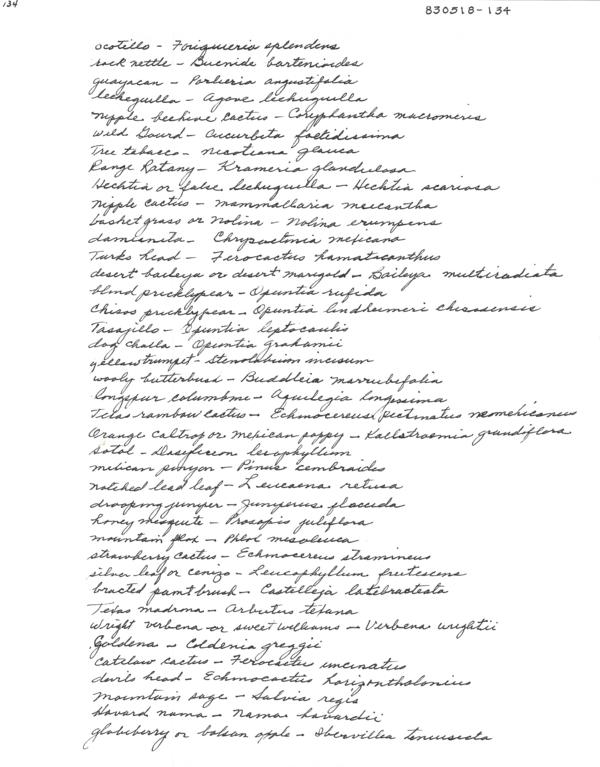 134
830518-134
ocotillo - Foriquieria splendens
rock nettle - Eucnide bartonioides
guayacan - Porlieria angustifolia
lecheguilla - Agave lechuguilla
nipple beehive cactus - Coryphantha macromeris
Wild Gourd - Cucurbita foetidissima
Tree tabacco - nicotiana glauca
Range Ratany - Krameria glandulosa
Hechtia or false lechuguilla - Hechtia scariosa
nipple cactus - mammallaria meicantha
basket grass or nolina - nolina erumpens
damianita - Chrysactinia mexicana
Turks head - Ferocactus hamatacanthus
desert baileya or desert marigold - Baileya multiradiata
blind pricklypear - Opuntia rufida
Chisos pricklypear - Opuntia lindheimeri chisosensis
Tasajillo - Opuntia leptocaulis
dog cholla - Opuntia grahamii
yellow trumpet - Stenolobium incisum
wooly butterbush - Buddleia marrubifolia
longspur columbine - Aquilegia longissima
Texas rainbow cactus - Echinocereus pectinatus neomexicanus
Orange caltrop or mexican poppy - Kallstroemia grandiflora
sotol - Dasylirion leiophyllum
mexican pinyon - Pinus cembroides
notched lead leaf - Leucaena retusa
drooping juniper - Juniperus flaccida
honey mesquite - Prosopis juliflora
mountain phlox - Phlox mesoleuca
strawberry cactus - Echinocereus stramineus
silver leaf or cenizo - Leucophyllum frutescens
bracted paintbrush - Castilleja latebracteata
Texas madrona - Arbutus texana
Wright verbena or sweet williams - Verbena wrightii
Goldena - Coldenia greggii
Catclaw cactus - Ferocactus uncinatus
devils head - Echinocactus horizonthalonius
Mountain sage - Salvia regis
Havard nama - Nama havardii
globeberry or balsam apple - Ibervillea tenuisecta